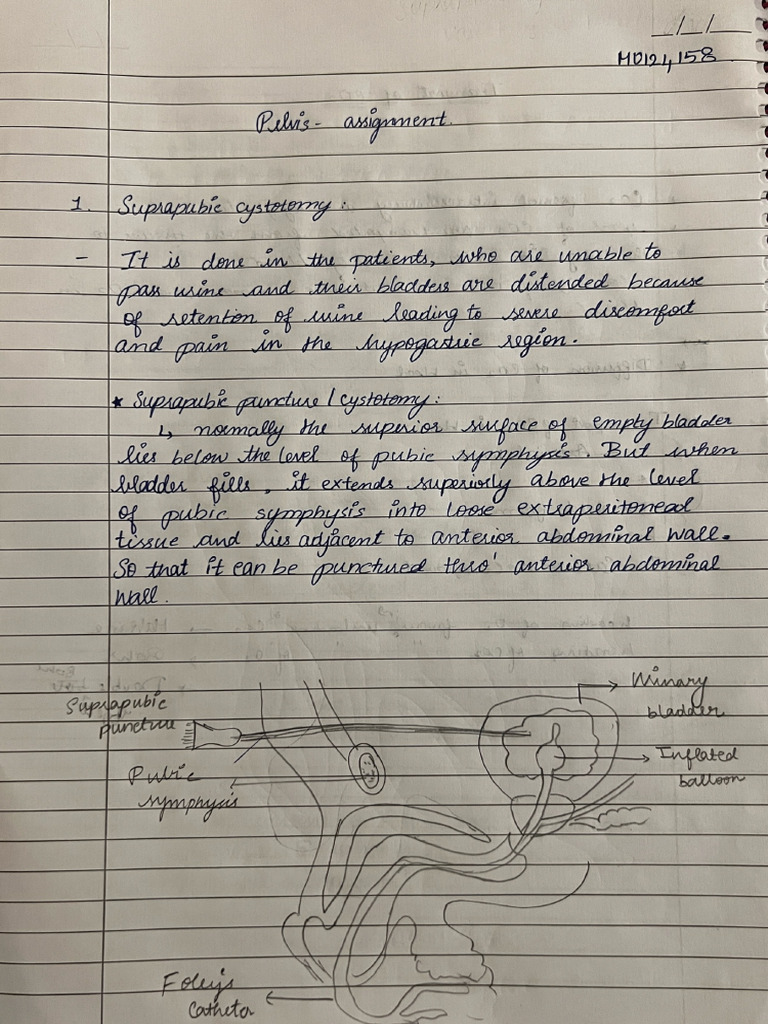 _/_/_
MD124,158
Pelvis- assignment.
1. Suprapubic cystotomy :
- It is done in the patients, who are unable to
pass urine and their bladders are distended because
of retention of urine leading to severe discomfort
and pain in the hypogastric region.
* Suprapubic puncture / cystotomy :
↳ normally the superior surface of empty bladder
lies below the level of pubic symphysis. But when
bladder fills, it extends superiorly above the level
of pubic symphysis into loose extraperitoneal
tissue and lies adjacent to anterior abdominal wall.
So that it can be punctured thro' anterior abdominal
wall.
Suprapubic
puncture
Pubic
symphysis
Urinary
bladder
Inflated
balloon
Foley's
Catheter